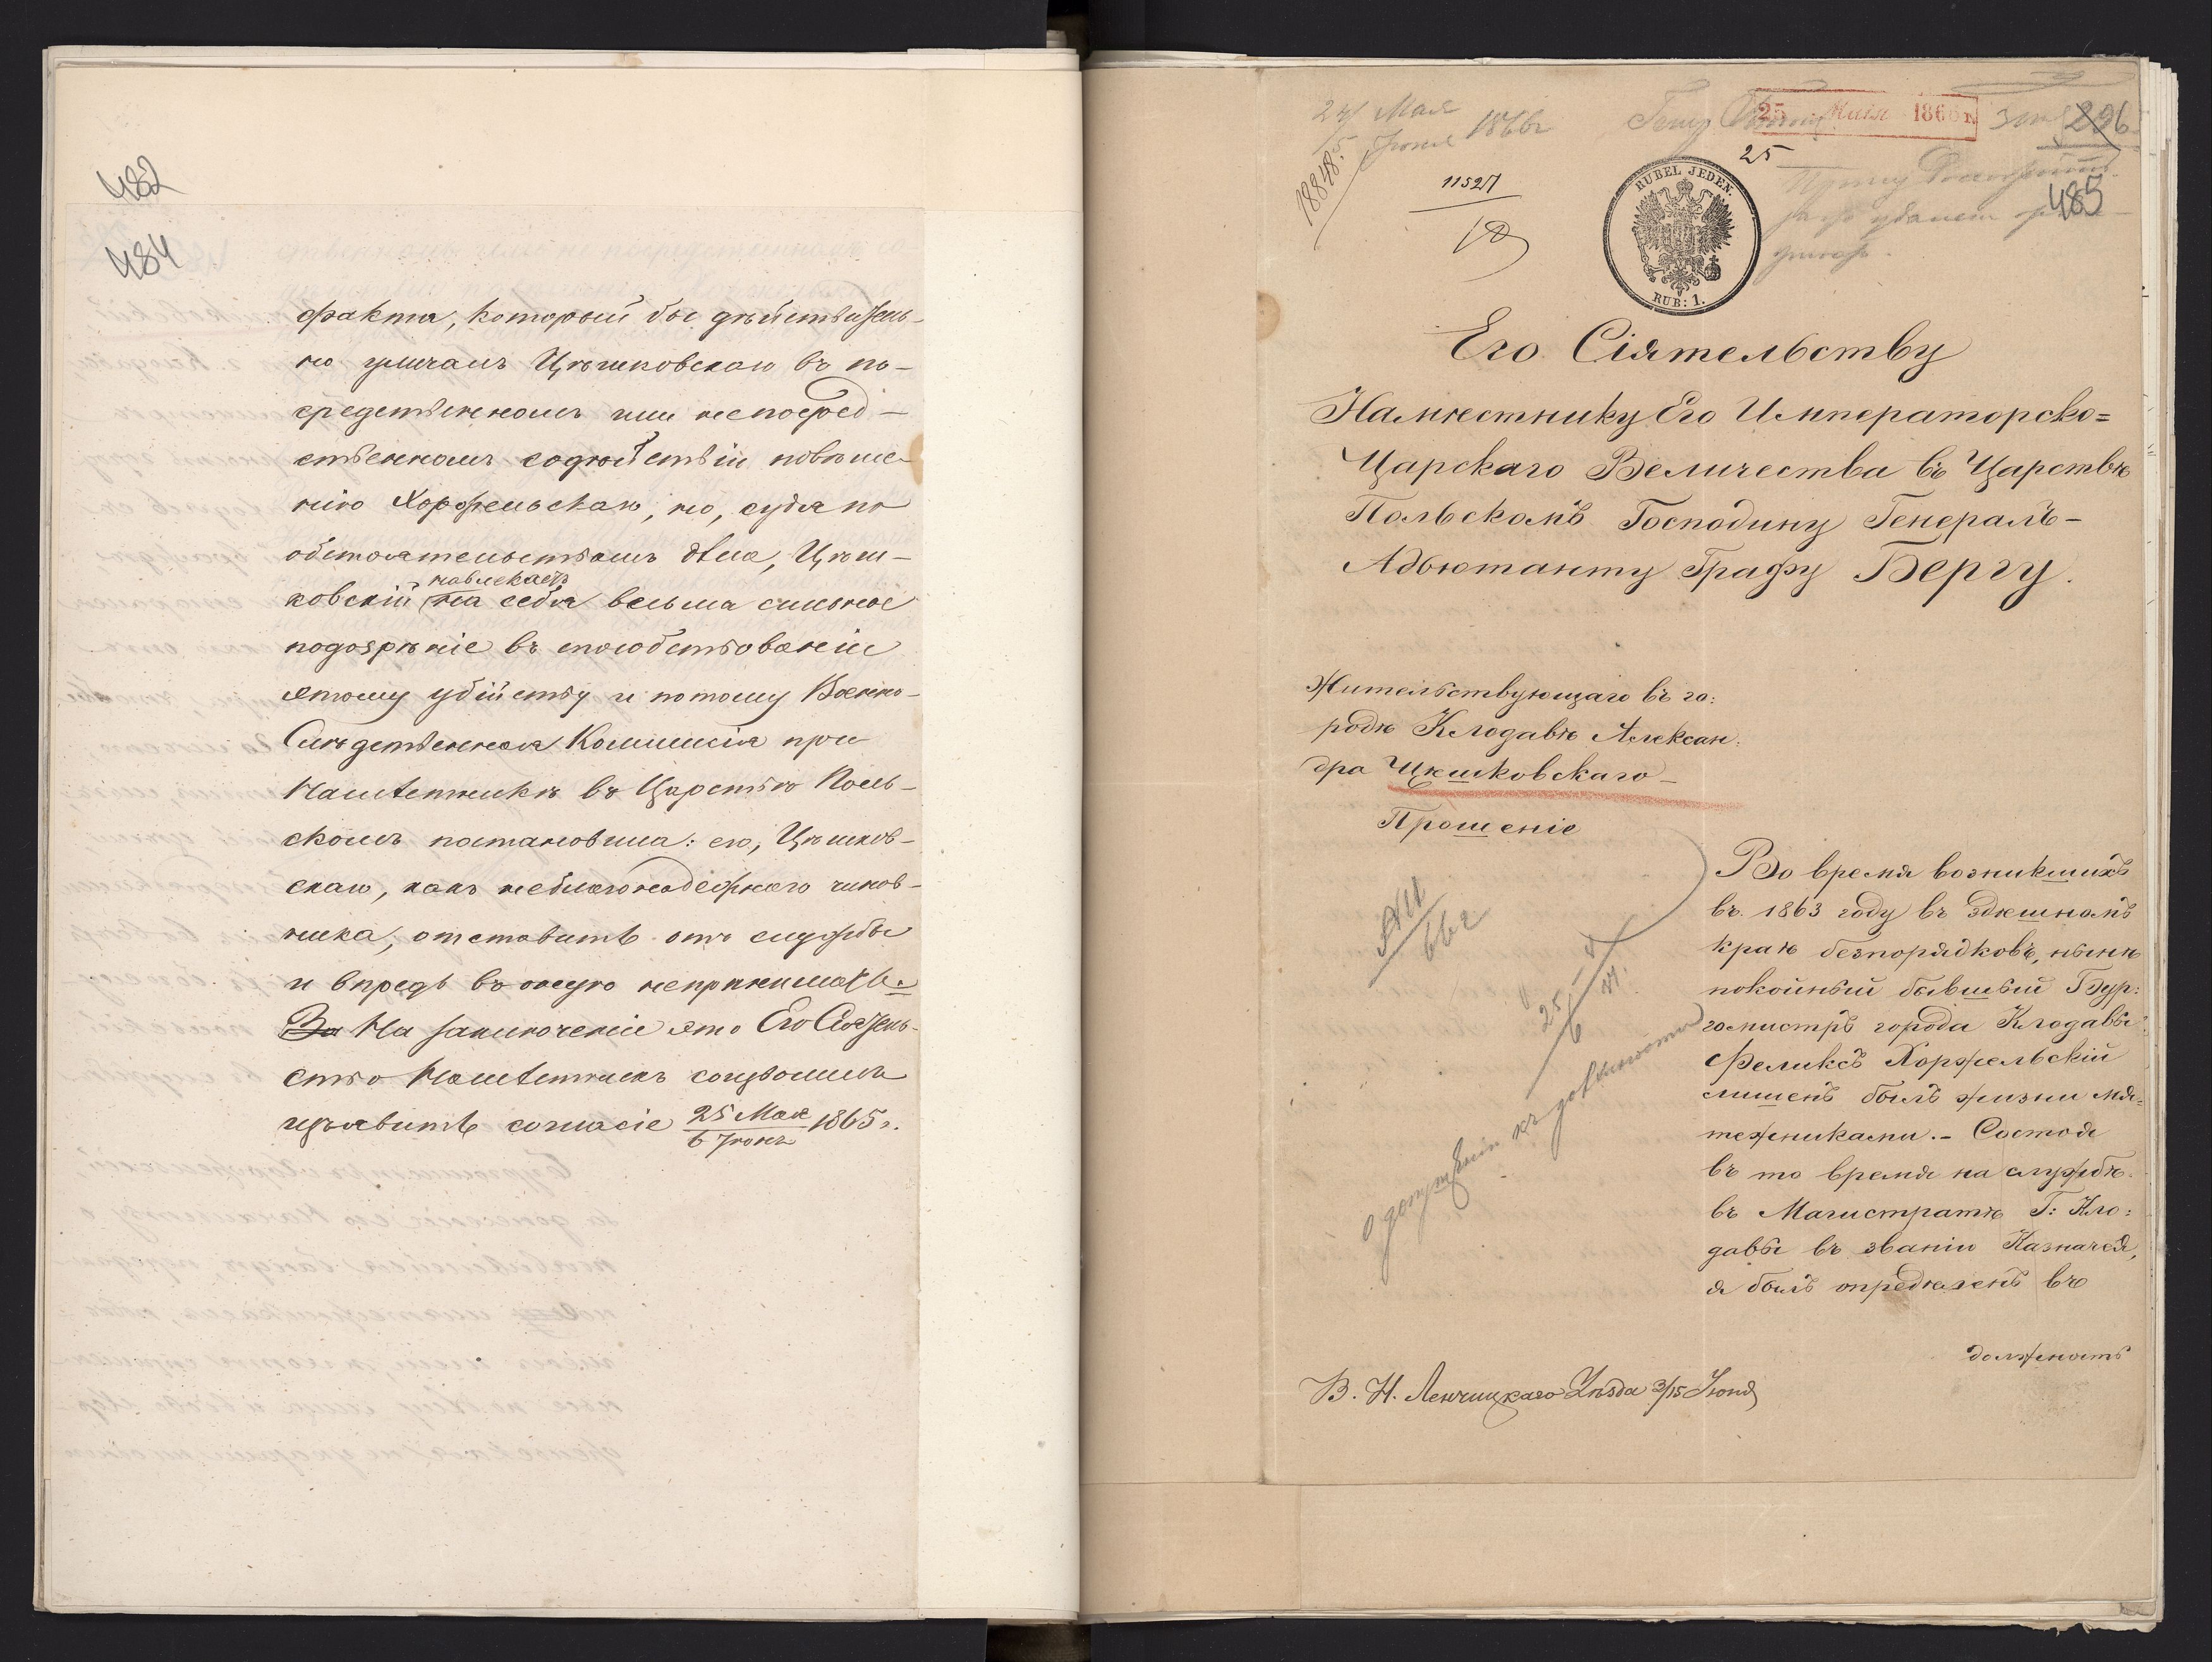 482
484
факта, который бы дѣйствитель-
но уличалъ Цѣшковскаго въ по-
средственномъ или непосред-
ственномъ содѣйствіи повѣше-
нію Хоржельскаго, но, судя по
обстоятельствамъ дѣла, Цѣш-
навлекаетъ
ковскій на себя весьма сильное
подозрѣніе въ способствованіи
этому убійству и потому Военно-
Слѣдственная Коммисія при
Намѣстникѣ въ Царствѣ Поль-
скомъ постановила: его, Цѣшков-
скаго, какъ неблагонадежнаго чинов-
ника, отставить отъ службы
и впредь въ оную непринимать.
За На заключеніе это Его Сіятель-
ство Намѣстникъ соизволилъ
изъявить согласіе 25 Мая / 6 Іюня 1865 г.
24 Мая / 5 Іюня 1866 г
25 Мая 1866 г.
296
18848
11527
18
25
485
RUBEL JEDEN.
RUB: 1.
Его Сіятельству
Намѣстнику Его Императорско=
Царскаго Величества въ Царствѣ
Польскомъ Господину Генералъ-
Адъютанту Графу Бергу.
Жительствующаго въ го:
родѣ Клодавѣ Алексан:
дра Цѣшковскаго
Прошеніе
Во время возникшихъ
въ 1863 году въ здѣшнемъ
краѣ безпорядковъ, нынѣ
покойный бывшый Бур:
гомистръ города Клодавы
Феликсъ Хоржельскій
лишенъ былъ жизни мя=
тежниками.- Состоя
въ то время на службѣ
въ Магистратѣ Г: Кло:
давы въ званіи Казначея,
я былъ опредѣленъ въ
должность
66 г
25/6
О допущеніи къ должности
В. Н. Ленчицкаго Уѣзда 3/15 Іюня